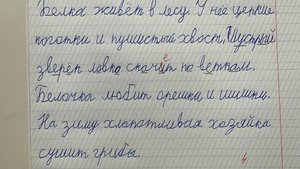 Белка живёт в лесу. У неё цепкие
коготки и пушистый хвост. Шустрый
зверёк ловко скачет по веткам.
Белочка любит орешки и шишки.
На зиму хлопотливая хозяйка
сушит грибы.
4